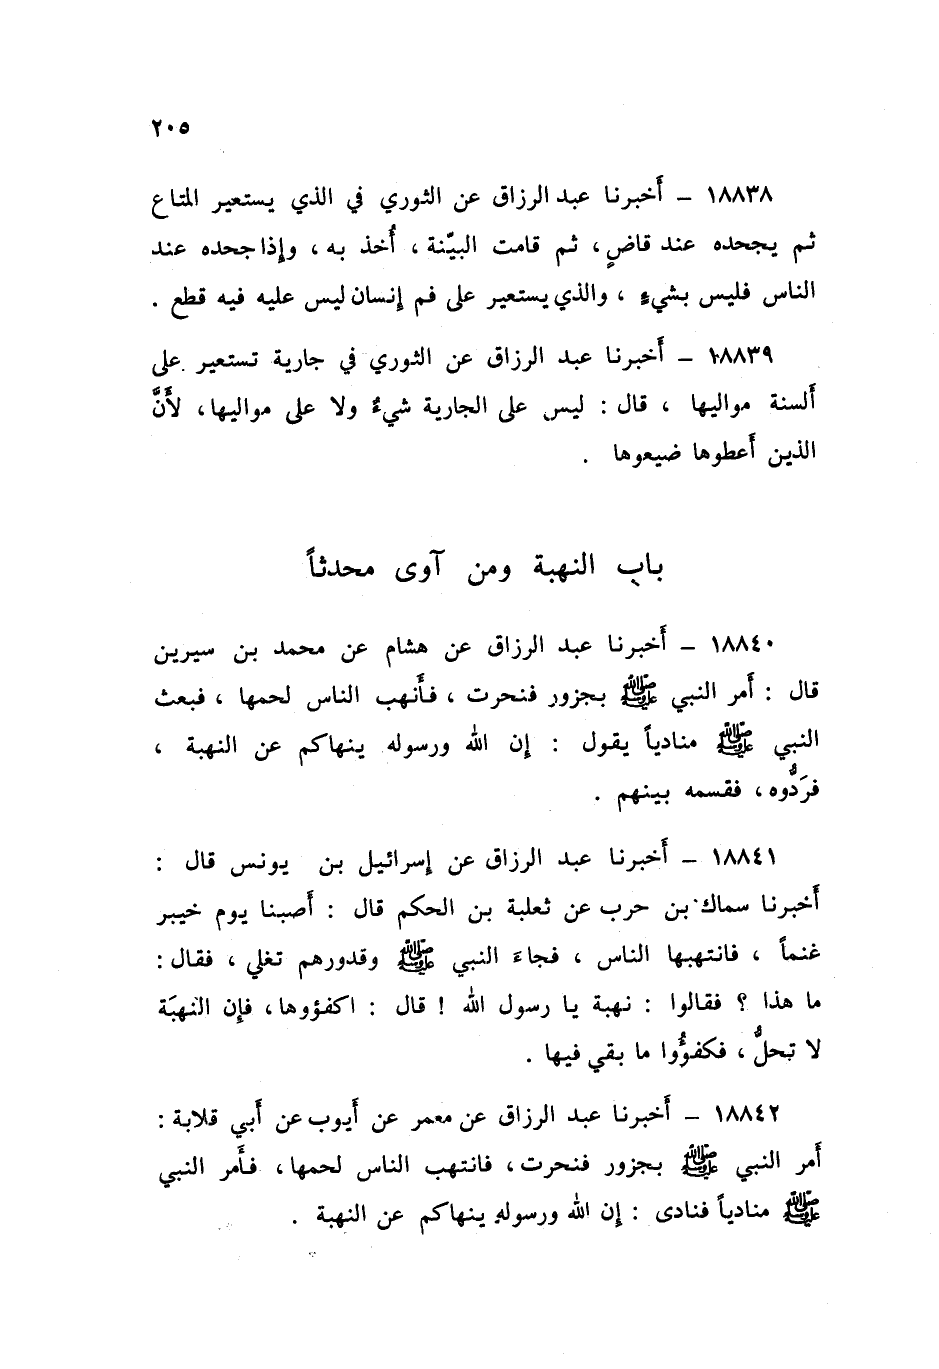 ٢٠٥
١٨٨٣٨ – أخبرنا عبد الرزاق عن الثوري في الذي يستعير المتاع
ثم يجحده عند قاضٍ ، ثم قامت البيّنة ، أُخذ به ، وإذا جحده عند
الناس فليس بشيءٍ ، والذي يستعير على فم إنسان ليس عليه فيه قطع .
١٨٨٣٩ – أخبرنا عبد الرزاق عن الثوري في جارية تستعير على
ألسنة مواليها ، قال : ليس على الجارية شيءٌ ولا على مواليها ، لأَنَّ
الذين أعطوها ضيعوها .
باب النهبة ومن آوى محدثاً
١٨٨٤٠ – أخبرنا عبد الرزاق عن هشام عن محمد بن سيرين
قال : أمر النبي ﷺ بجزور فنحرت ، فأنهب الناس لحمها ، فبعث
النبي ﷺ منادياً يقول : إن الله ورسوله ينهاكم عن النهبة ،
فرَدُّوه ، فقسمه بينهم .
١٨٨٤١ – أخبرنا عبد الرزاق عن إسرائيل بن يونس قال :
أخبرنا سماك بن حرب عن ثعلبة بن الحكم قال : أصبنا يوم خيبر
غنماً ، فانتهبها الناس ، فجاءَ النبي ﷺ وقدورهم تغلي ، فقال :
ما هذا ؟ فقالوا : نهبة يا رسول الله ! قال : اكفؤوها ، فإن النهبَة
لا تحلُّ ، فكفؤُوا ما بقي فيها .
١٨٨٤٢ – أخبرنا عبد الرزاق عن معمر عن أيوب عن أبي قلابة :
أمر النبي ﷺ بجزور فنحرت ، فانتهب الناس لحمها ، فأمر النبي
ﷺ منادياً فنادى : إن الله ورسوله ينهاكم عن النهبة .